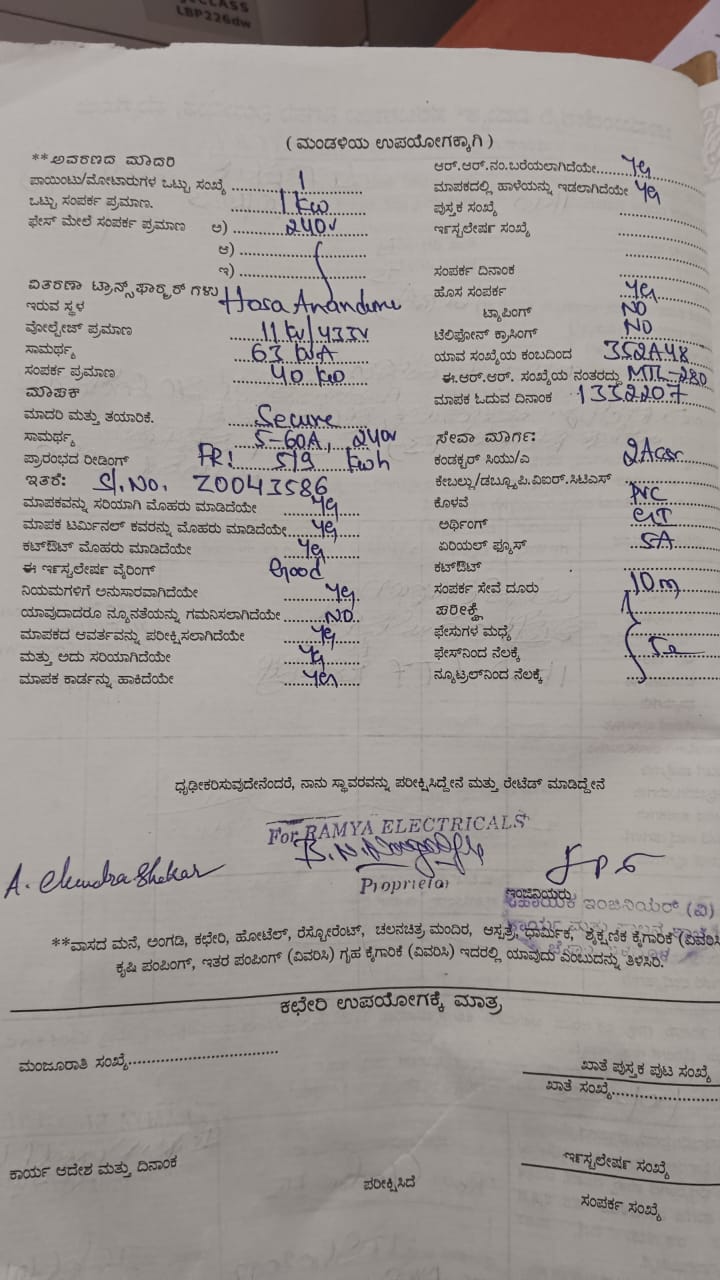 CLASS
LBP226dw
( ಮಂಡಳಿಯ ಉಪಯೋಗಕ್ಕಾಗಿ )
**ಆವರಣದ ಮಾದರಿ
ಪಾಯಿಂಟು/ಮೋಟಾರುಗಳ ಒಟ್ಟು ಸಂಖ್ಯೆ 1
ಒಟ್ಟು ಸಂಪರ್ಕ ಪ್ರಮಾಣ. 1 kw
ಫೇಸ್ ಮೇಲೆ ಸಂಪರ್ಕ ಪ್ರಮಾಣ ಅ) 240v
ಆ)
ಇ)
ವಿತರಣಾ ಟ್ರಾನ್ಸ್‌ಫಾರ್‍ಮರ್ ಗಳು
ಇರುವ ಸ್ಥಳ Hosa Anandune
ವೋಲ್ಟೇಜ್ ಪ್ರಮಾಣ 11 kv/433V
ಸಾಮರ್ಥ್ಯ 63 kVA
ಸಂಪರ್ಕ ಪ್ರಮಾಣ 40 kw
ಮಾಪಕ
ಮಾದರಿ ಮತ್ತು ತಯಾರಿಕೆ. Secure
ಸಾಮರ್ಥ್ಯ 5-60A, 240v
ಪ್ರಾರಂಭದ ರೀಡಿಂಗ್ FR: 5/9 kwh
ಇತರೆ: Sl.No. Z0043586
ಮಾಪಕವನ್ನು ಸರಿಯಾಗಿ ಮೊಹರು ಮಾಡಿದೆಯೇ Yes
ಮಾಪಕ ಟರ್ಮಿನಲ್ ಕವರನ್ನು ಮೊಹರು ಮಾಡಿದೆಯೇ Yes
ಕಟ್‌ಔಟ್ ಮೊಹರು ಮಾಡಿದೆಯೇ Yes
ಈ ಇನ್‌ಸ್ಟಲೇಷನ್ ವೈರಿಂಗ್ Good
ನಿಯಮಗಳಿಗೆ ಅನುಸಾರವಾಗಿದೆಯೇ Yes.
ಯಾವುದಾದರೂ ನ್ಯೂನತೆಯನ್ನು ಗಮನಿಸಲಾಗಿದೆಯೇ NO.
ಮಾಪಕದ ಆವರ್ತವನ್ನು ಪರೀಕ್ಷಿಸಲಾಗಿದೆಯೇ Yes
ಮತ್ತು ಅದು ಸರಿಯಾಗಿದೆಯೇ Yes
ಮಾಪಕ ಕಾರ್ಡನ್ನು ಹಾಕಿದೆಯೇ Yes
ಆರ್.ಆರ್.ನಂ.ಬರೆಯಲಾಗಿದೆಯೇ Yes
ಮಾಪಕದಲ್ಲಿ ಹಾಳೆಯನ್ನು ಇಡಲಾಗಿದೆಯೇ Yes
ಪುಸ್ತಕ ಸಂಖ್ಯೆ
ಇನ್‌ಸ್ಟಲೇಷನ್ ಸಂಖ್ಯೆ
ಸಂಪರ್ಕ ದಿನಾಂಕ
ಹೊಸ ಸಂಪರ್ಕ Yes
ಟ್ಯಾಪಿಂಗ್ NO
ಟೆಲಿಫೋನ್ ಕ್ರಾಸಿಂಗ್ NO
ಯಾವ ಸಂಖ್ಯೆಯ ಕಂಬದಿಂದ 352A48
ಈ.ಆರ್.ಆರ್. ಸಂಖ್ಯೆಯ ನಂತರದ್ದು MTL-280
ಮಾಪಕ ಓದುವ ದಿನಾಂಕ 1332207
ಸೇವಾ ಮಾರ್ಗ:
ಕಂಡಕ್ಟರ್ ಸಿಯು/ಎ 2Acsr
ಕೇಬಲ್ಲು/ಡಬ್ಲ್ಯೂ.ಪಿ.ವಿಐಆರ್.ಸಿಟಿಎಸ್
ಕೊಳವೆ PVC
ಅರ್ಥಿಂಗ್ GI
ಏರಿಯಲ್ ಫ್ಯೂಸ್ 5A
ಕಟ್‌ಔಟ್
ಸಂಪರ್ಕ ಸೇವೆ ದೂರು 10m
ಪರೀಕ್ಷೆ
ಫೇಸುಗಳ ಮಧ್ಯೆ
ಫೇಸ್‌ನಿಂದ ನೆಲಕ್ಕೆ
ನ್ಯೂಟ್ರಲ್‌ನಿಂದ ನೆಲಕ್ಕೆ
ಧೃಢೀಕರಿಸುವುದೇನೆಂದರೆ, ನಾನು ಸ್ಥಾವರವನ್ನು ಪರೀಕ್ಷಿಸಿದ್ದೇನೆ ಮತ್ತು ರೇಟೆಡ್ ಮಾಡಿದ್ದೇನೆ
For RAMYA ELECTRICALS
A. Chandra Shekar
Proprietor
ಇಂಜಿನಿಯರು
ಸಹಾಯಕ ಇಂಜಿನಿಯರ್ (ವಿ)
**ವಾಸದ ಮನೆ, ಅಂಗಡಿ, ಕಛೇರಿ, ಹೋಟೆಲ್, ರೆಸ್ಟೋರೆಂಟ್, ಚಲನಚಿತ್ರ ಮಂದಿರ, ಆಸ್ಪತ್ರೆ, ಧಾರ್ಮಿಕ, ಶೈಕ್ಷಣಿಕ ಕೈಗಾರಿಕೆ (ವಿವರಿಸಿ
ಕೃಷಿ ಪಂಪಿಂಗ್, ಇತರ ಪಂಪಿಂಗ್ (ವಿವರಿಸಿ) ಗೃಹ ಕೈಗಾರಿಕೆ (ವಿವರಿಸಿ) ಇದರಲ್ಲಿ ಯಾವುದು ಎಂಬುದನ್ನು ತಿಳಿಸಿರಿ.
ಕಛೇರಿ ಉಪಯೋಗಕ್ಕೆ ಮಾತ್ರ
ಮಂಜೂರಾತಿ ಸಂಖ್ಯೆ
ಖಾತೆ ಪುಸ್ತಕ ಪುಟ ಸಂಖ್ಯೆ
ಖಾತೆ ಸಂಖ್ಯೆ
ಕಾರ್ಯ ಆದೇಶ ಮತ್ತು ದಿನಾಂಕ
ಪರೀಕ್ಷಿಸಿದೆ
ಇನ್‌ಸ್ಟಲೇಷನ್ ಸಂಖ್ಯೆ
ಸಂಪರ್ಕ ಸಂಖ್ಯೆ